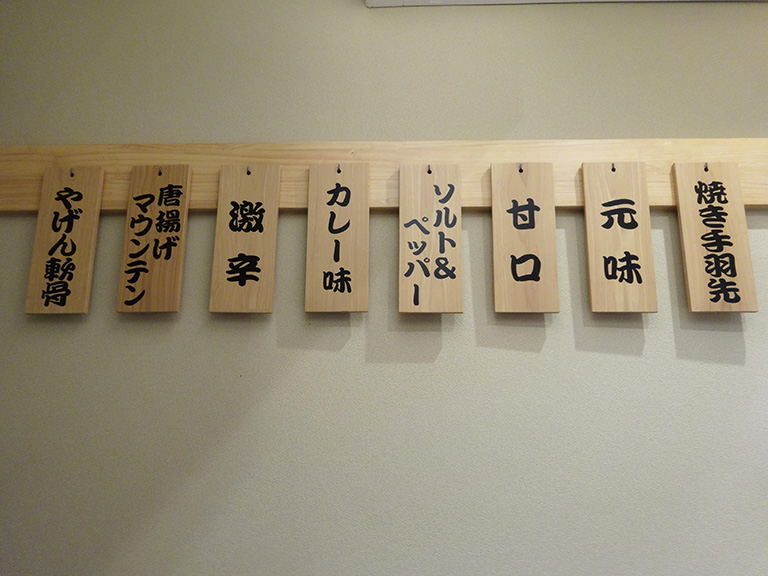 焼き手羽先
元味
甘口
ソルト&
ペッパー
カレー味
激辛
唐揚げ
マウンテン
やげん軟骨